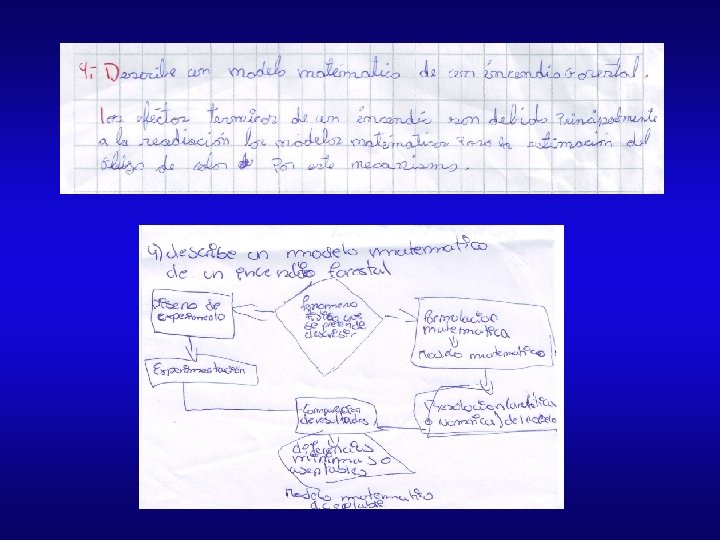 4.- Describe un modelo matematico de un incendio forestal.
Los efectos termicos de un incendio son debido principalmente
a la readiación los modelos matematicos para la estimación del
de calor por este mecanismo.
4) describe un modelo matematico
de un incendio forestal
Diseño de
experimento
fenomeno
fisico que
se pretende
describir
Formulacion
matematica
Modelo matematico
Experimentación
Comparacion
de resultados
Resolucion (analitica
o numerica) del modelo
diferencias
minimas o
aseptables
Modelo matematico
aceptable